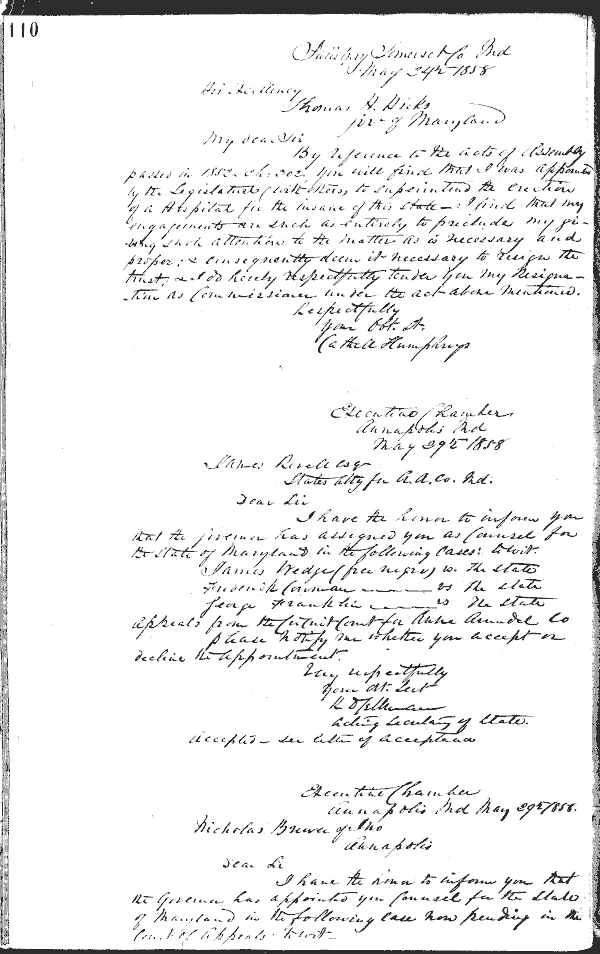 110
Salisbury Somerset Co Md
May 24th 1858
His Excellency
Thomas H. Hicks
Gov. of Maryland
My dear Sir
By reference to the acts of Assembly
passed in 1852 - ch: 302 you will find that I was appointed
by the Legislature, (with others) to superintend the erection
of a Hospital for the insane of this state - I find that my
engagements are such as entirely to preclude my gi-
ving such attention to the matter as is necessary and
proper; & consequently deem it necessary to resign the
trust; & I do hereby respectfully tender you my Resigna-
tion as Commissioner under the act above mentioned.
Respectfully
your Obt. St.
Cathell Humphreys
Executive Chamber
Annapolis Md
May 29th 1858
James Revell esqr
States atty for A.A. Co. Md.
Dear Sir
I have the honor to inform you
that the Governor has assigned you as Counsel for
the State of Maryland in the following Cases: to wit.
James Wedge (free negro) vs. the state
Frederick Cowman vs the state
George Franklin vs the state
appeals from the Circuit Court for Anne Arundel Co
please notify me whether you accept or
decline the appointment.
Very respectfully
your obt. Sevt
acting Secretary of State.
Accepted - see letter of acceptance
Executive Chamber
Annapolis Md May 29th 1858.
Nicholas Brewer of Jno
Annapolis
Dear Sir
I have the honor to inform you that
the Governor has appointed you Counsel for the State
of Maryland in the following case now pending in the
Court of Appeals - to wit -